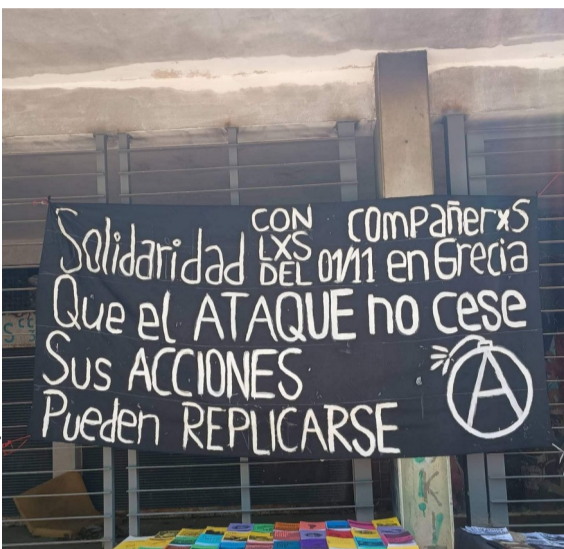 Solidaridad CON LXS DEL 01/11 compañerxs en Grecia
Que el ATAQUE no cese
Sus ACCIONES
Pueden REPLICARSE
A